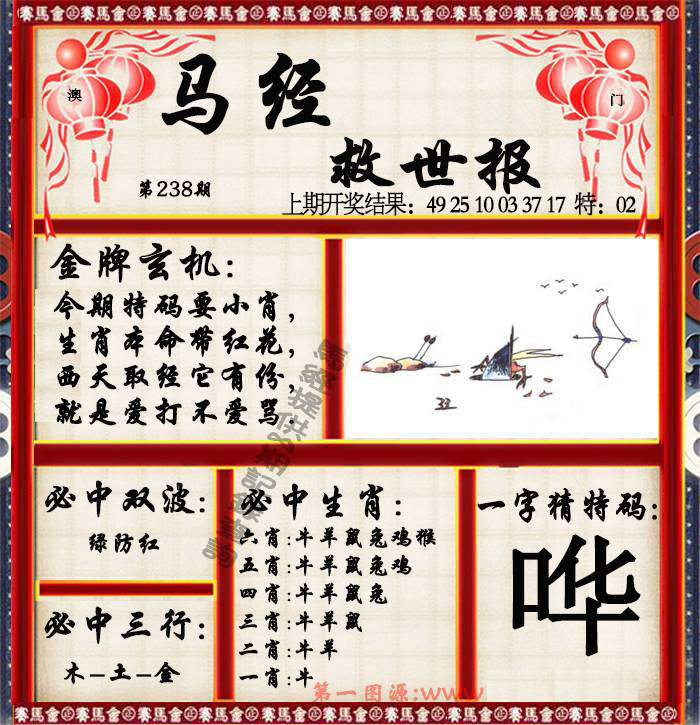 賽馬會金正賽馬會金正賽馬會金正賽馬會金正賽馬會金正
澳
门
马经
救世报
第238期
上期开奖结果：49 25 10 03 37 17 特：02
金牌玄机：
今期特码要小肖，
生肖本命带红花，
西天取经它有份，
就是爱打不爱骂.
33
必中双波：
绿防红
必中三行：
木–土–金
必中生肖：
六肖:牛羊鼠兔鸡猴
五肖:牛羊鼠兔鸡
四肖:牛羊鼠兔
三肖:牛羊鼠
二肖:牛羊
一肖:牛
一字猜特码：
哗
第一图源:www